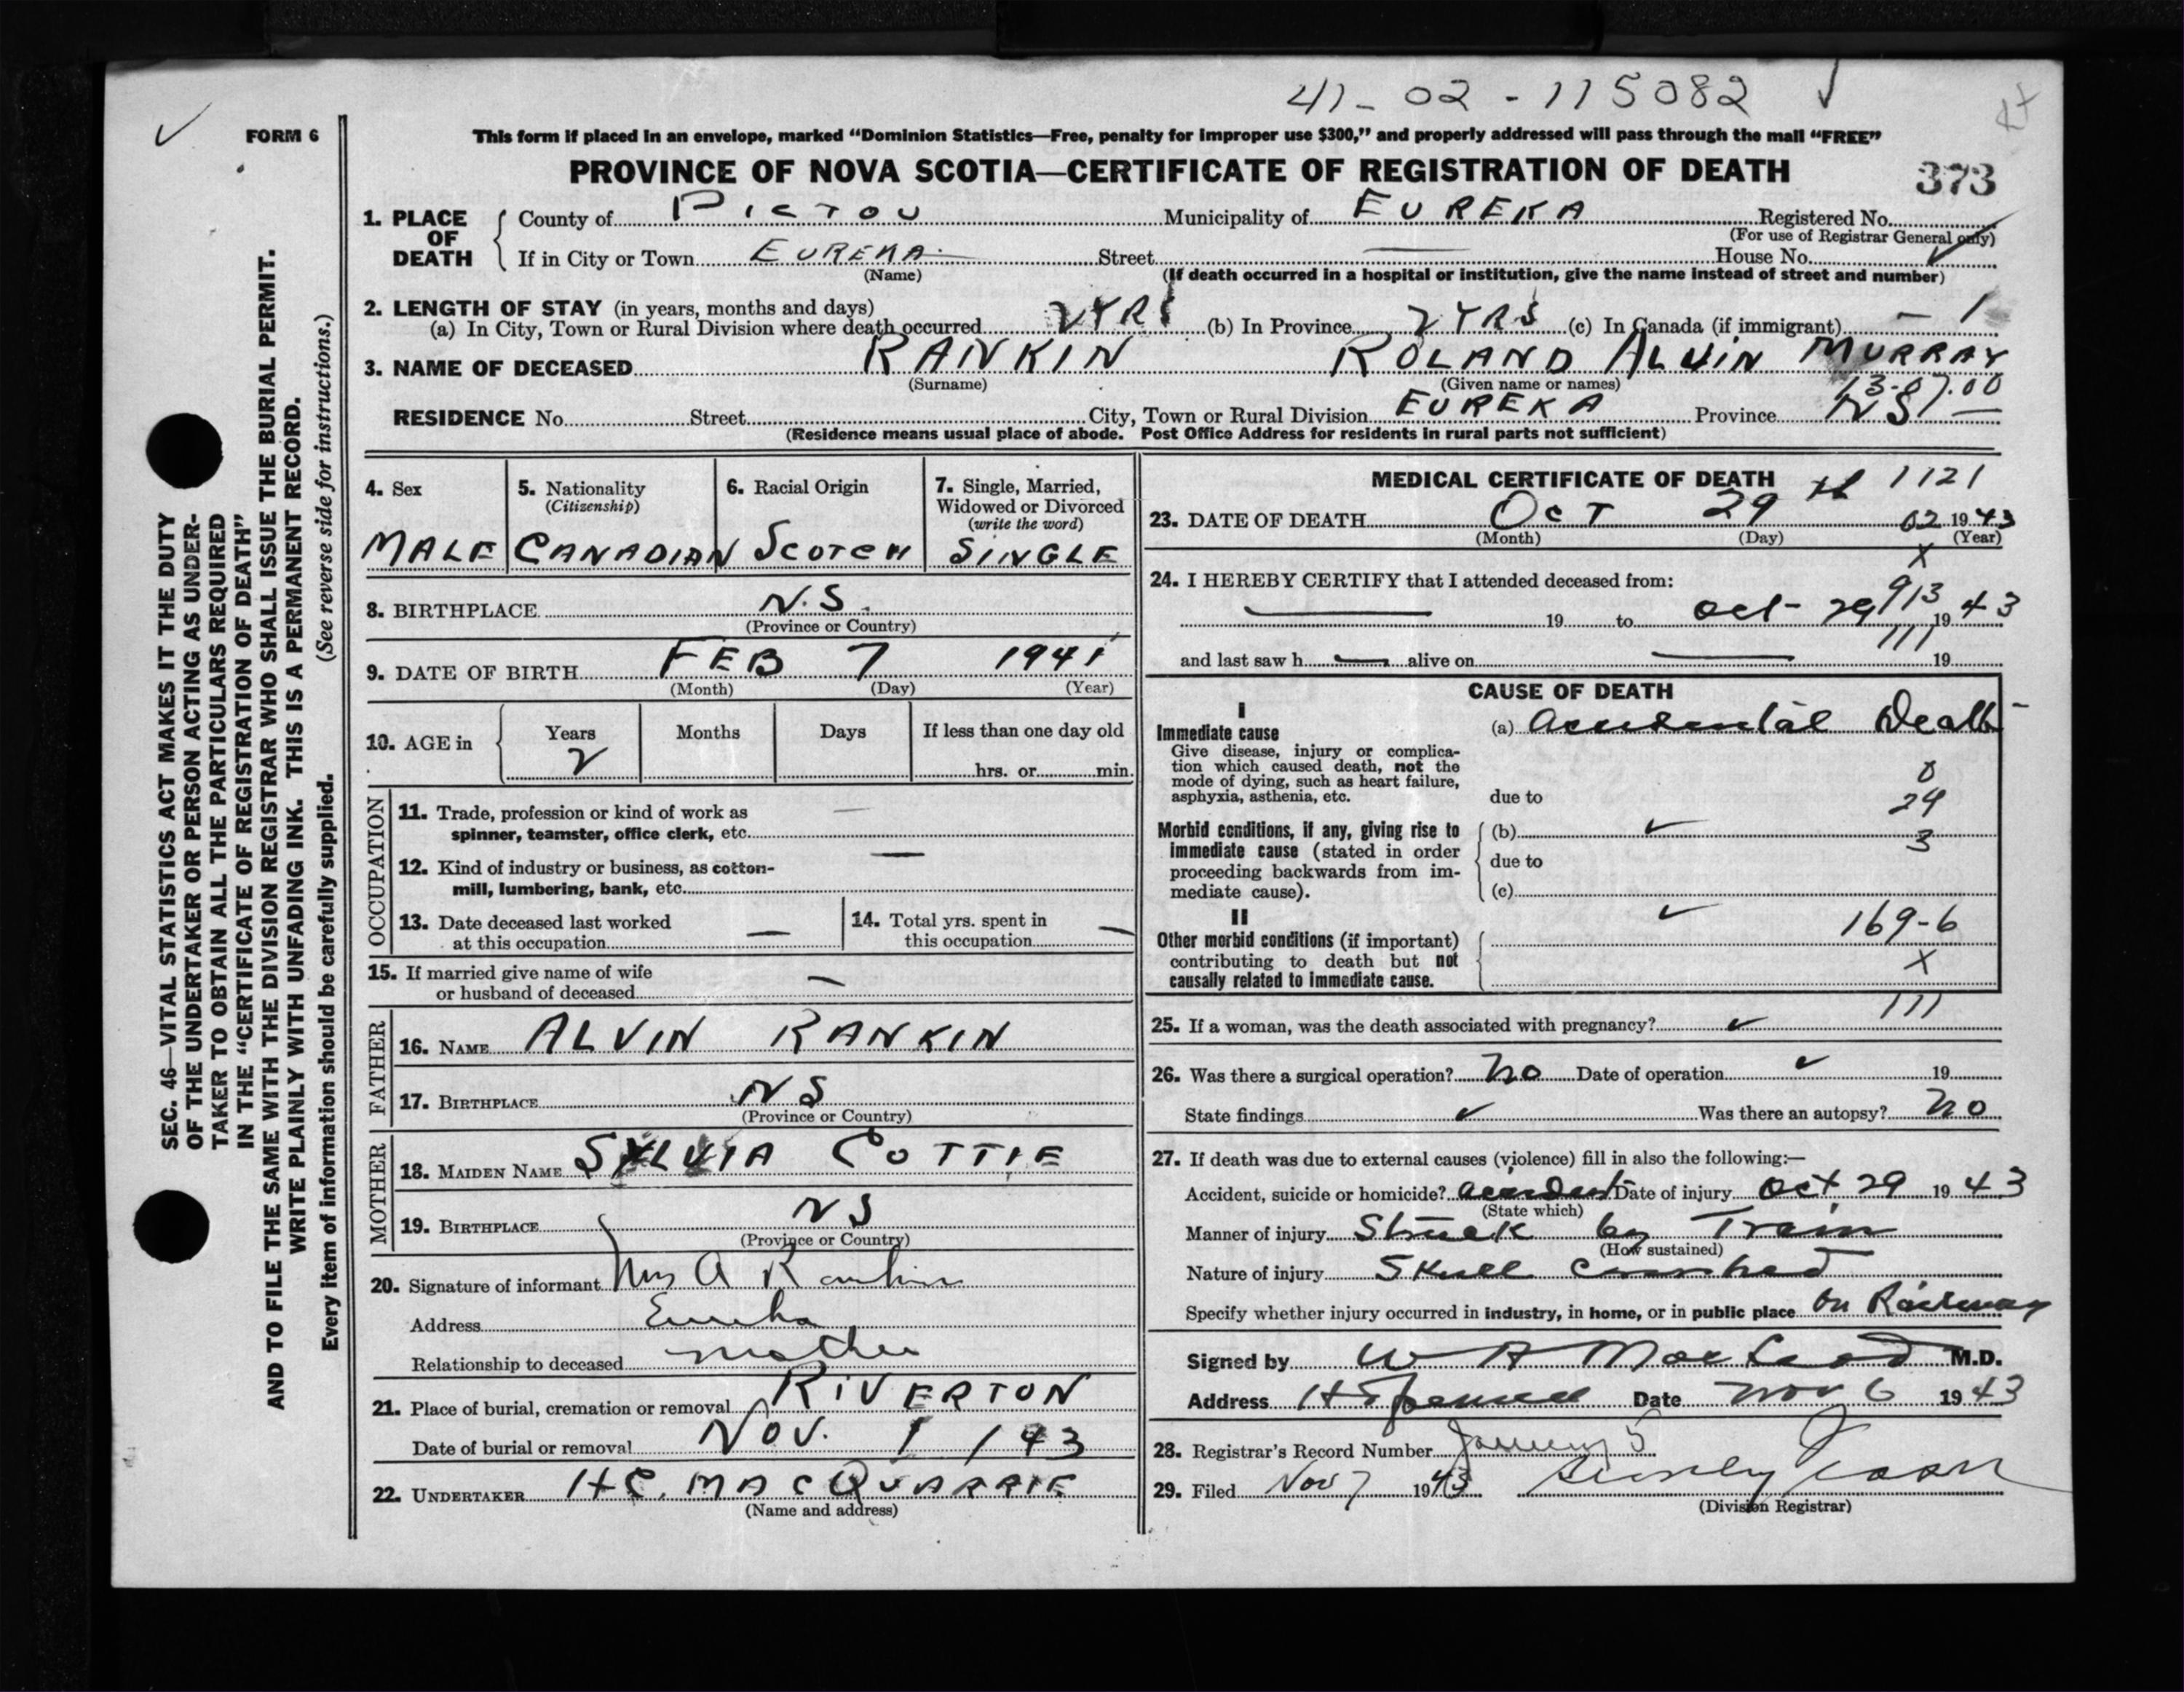 41-02-115082 ✓
✓
FORM 6
This form if placed in an envelope, marked “Dominion Statistics—Free, penalty for improper use $300,” and properly addressed will pass through the mail “FREE”
PROVINCE OF NOVA SCOTIA—CERTIFICATE OF REGISTRATION OF DEATH
373
1. PLACE OF DEATH { County of PICTOU Municipality of EUREKA Registered No.
(For use of Registrar General only)
If in City or Town EUREKA Street — House No. ✓
(Name) (If death occurred in a hospital or institution, give the name instead of street and number)
2. LENGTH OF STAY (in years, months and days)
(a) In City, Town or Rural Division where death occurred 2 YRS (b) In Province 2 YRS (c) In Canada (if immigrant) — 1
3. NAME OF DECEASED RANKIN ROLAND ALVIN MURRAY
(Surname) (Given name or names) 13-07.00
RESIDENCE No. Street City, Town or Rural Division EUREKA Province NS
(Residence means usual place of abode. Post Office Address for residents in rural parts not sufficient)
4. Sex
MALE
5. Nationality
(Citizenship)
CANADIAN
6. Racial Origin
SCOTCH
7. Single, Married,
Widowed or Divorced
(write the word)
SINGLE
8. BIRTHPLACE N.S.
(Province or Country)
9. DATE OF BIRTH FEB 7 1941
(Month) (Day) (Year)
10. AGE in { Years Months Days If less than one day old
2 hrs. or min.
OCCUPATION
11. Trade, profession or kind of work as —
spinner, teamster, office clerk, etc.
12. Kind of industry or business, as cotton- —
mill, lumbering, bank, etc.
13. Date deceased last worked
at this occupation —
14. Total yrs. spent in
this occupation —
15. If married give name of wife
or husband of deceased —
FATHER
16. NAME ALVIN RANKIN
17. BIRTHPLACE NS
(Province or Country)
MOTHER
18. MAIDEN NAME SYLVIA COTTIE
19. BIRTHPLACE NS
(Province or Country)
20. Signature of informant Mrs A Rankin
Address Eureka
Relationship to deceased mother
21. Place of burial, cremation or removal RIVERTON
Date of burial or removal NOV. 1 / 43
22. UNDERTAKER H C. MACQUARRIE
(Name and address)
MEDICAL CERTIFICATE OF DEATH 1121
23. DATE OF DEATH OCT 29 th 02 1943
(Month) (Day) (Year)
X
24. I HEREBY CERTIFY that I attended deceased from:
913
— 19 to Oct- 29 1943
111
and last saw h — alive on — 19
CAUSE OF DEATH
I
Immediate cause
Give disease, injury or complica-
tion which caused death, not the
mode of dying, such as heart failure,
asphyxia, asthenia, etc.
(a) Accidental Death
0
due to 24
Morbid conditions, if any, giving rise to
immediate cause (stated in order
proceeding backwards from im-
mediate cause).
(b) ✓ 3
due to
(c)
II
Other morbid conditions (if important)
contributing to death but not
causally related to immediate cause.
✓ 169-6
X
111
25. If a woman, was the death associated with pregnancy? ✓
26. Was there a surgical operation? No Date of operation ✓ 19
State findings ✓ Was there an autopsy? No
27. If death was due to external causes (violence) fill in also the following:—
Accident, suicide or homicide? Accident Date of injury Oct 29 1943
(State which)
Manner of injury Struck by Train
(How sustained)
Nature of injury Skull crushed
Specify whether injury occurred in industry, in home, or in public place On Railway
Signed by W A MacLeod M.D.
Address Date Nov 6 1943
28. Registrar's Record Number
29. Filed Nov 7 1943
(Division Registrar)
SEC. 46—VITAL STATISTICS ACT MAKES IT THE DUTY
OF THE UNDERTAKER OR PERSON ACTING AS UNDER-
TAKER TO OBTAIN ALL THE PARTICULARS REQUIRED
IN THE “CERTIFICATE OF REGISTRATION OF DEATH”
AND TO FILE THE SAME WITH THE DIVISION REGISTRAR WHO SHALL ISSUE THE BURIAL PERMIT.
WRITE PLAINLY WITH UNFADING INK. THIS IS A PERMANENT RECORD.
(See reverse side for instructions.)
Every item of information should be carefully supplied.